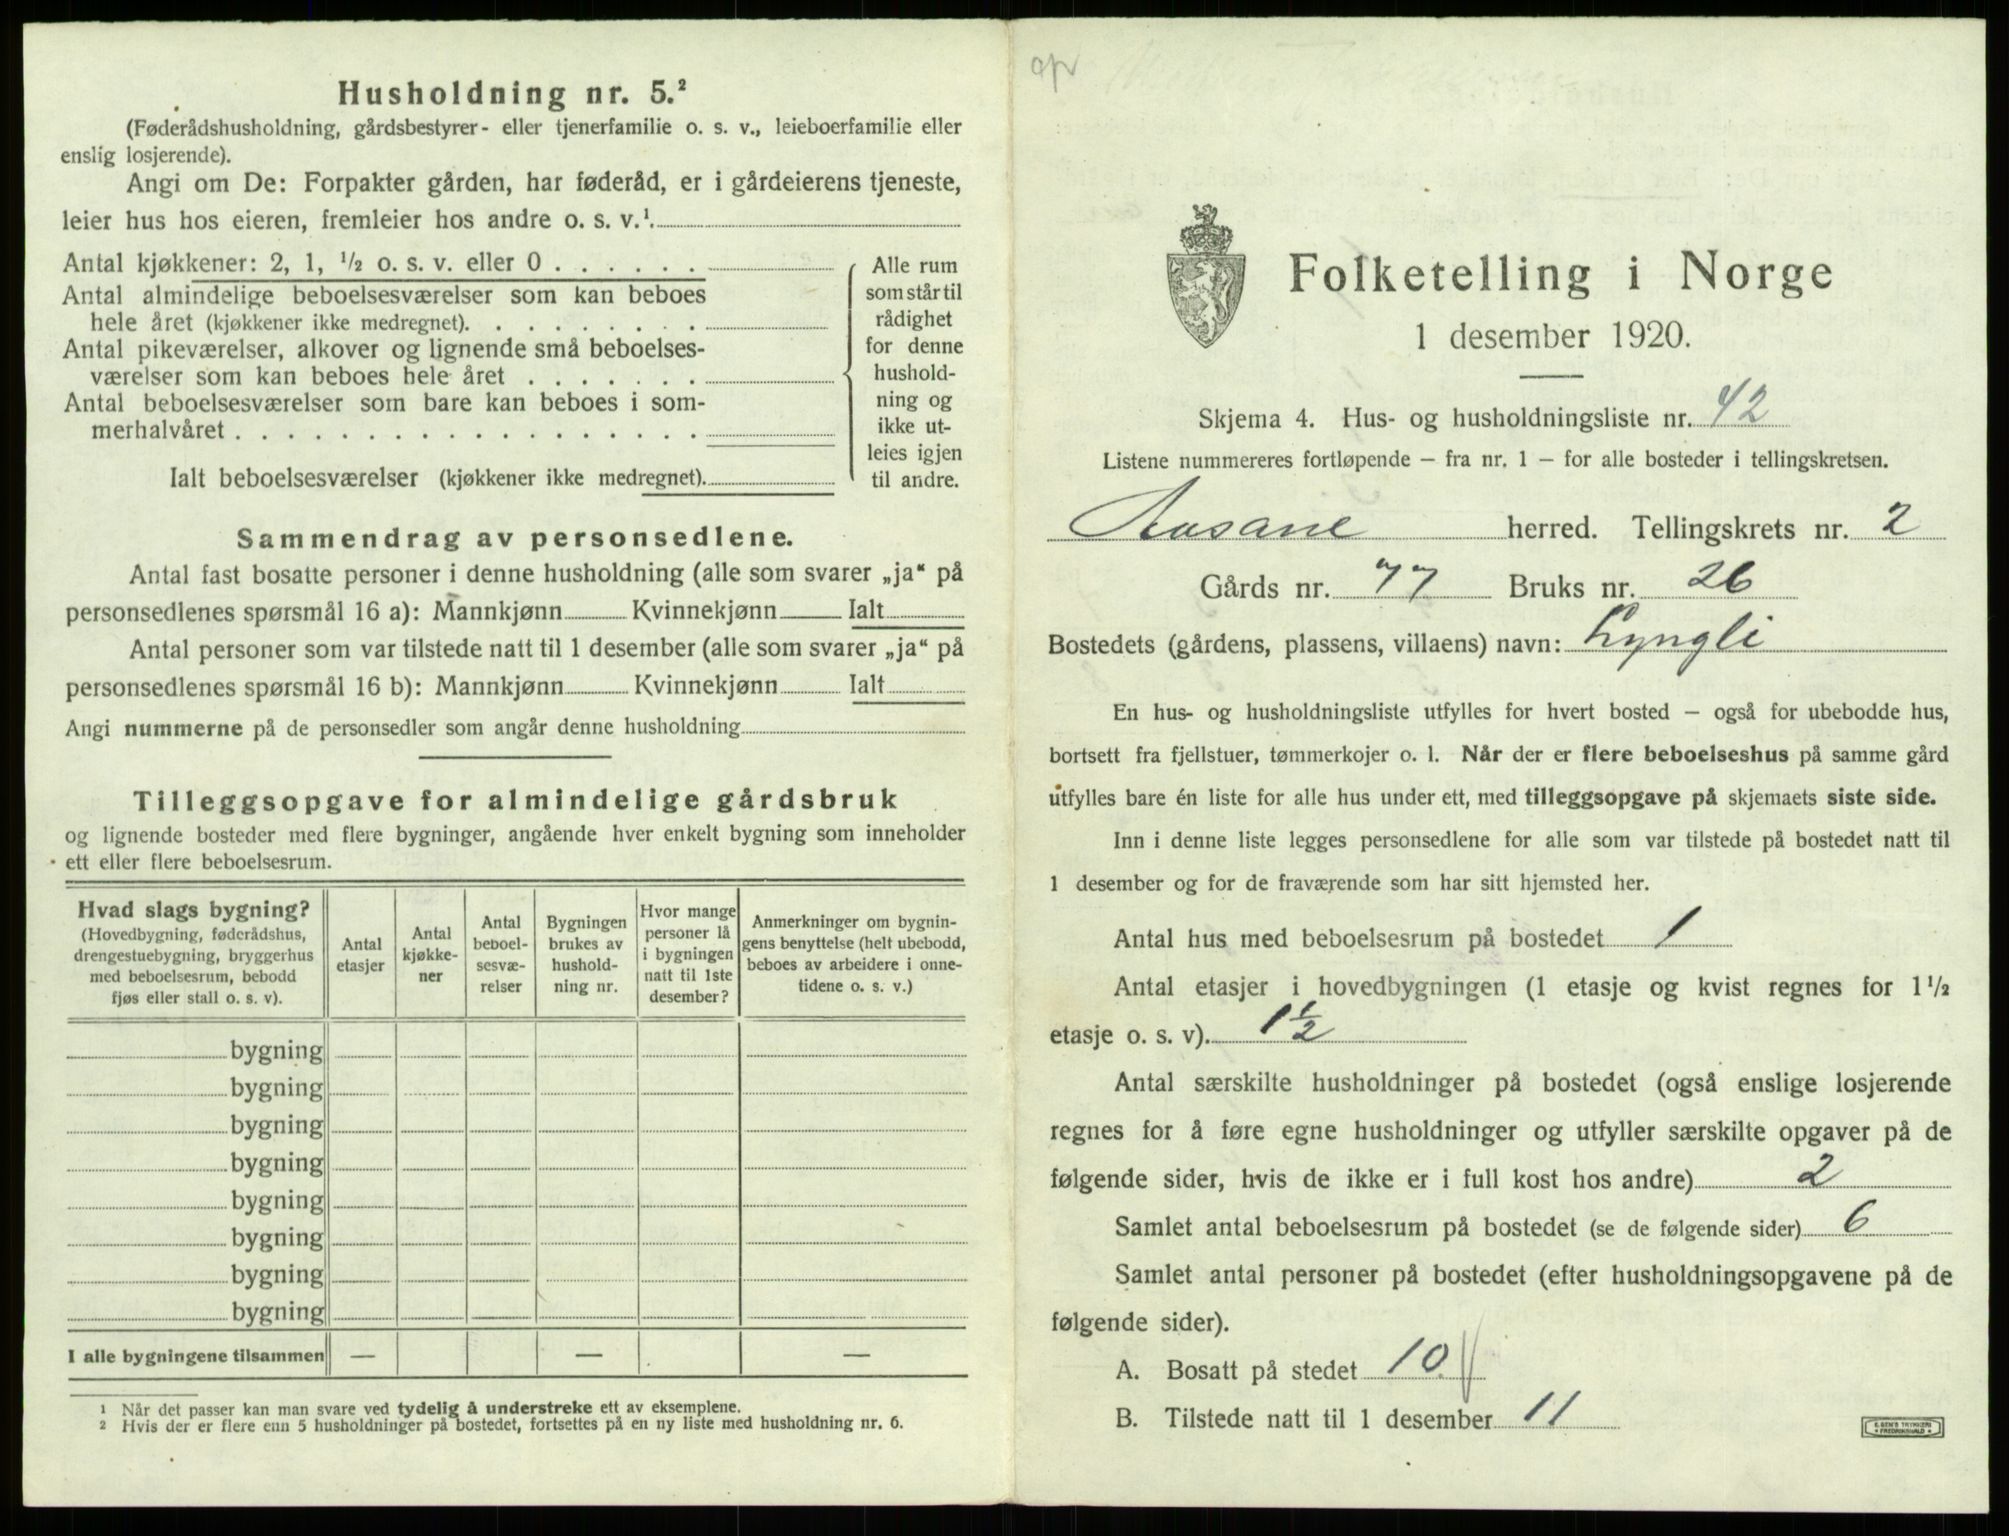 Husholdning nr. 5.²
(Føderådshusholdning, gårdsbestyrer- eller tjenerfamilie o. s. v., leieboerfamilie eller
enslig losjerende).
Angi om De: Forpakter gården, har føderåd, er i gårdeierens tjeneste,
leier hus hos eieren, fremleier hos andre o. s. v.¹
Antal kjøkkener: 2, 1, ½ o. s. v. eller 0
Antal almindelige beboelsesværelser som kan beboes
hele året (kjøkkener ikke medregnet).
Antal pikeværelser, alkover og lignende små beboelses-
værelser som kan beboes hele året
Antal beboelsesværelser som bare kan beboes i som-
merhalvåret
Ialt beboelsesværelser (kjøkkener ikke medregnet).
Alle rum
som står til
rådighet
for denne
hushold-
ning og
ikke ut-
leies igjen
til andre.
Sammendrag av personsedlene.
Antal fast bosatte personer i denne husholdning (alle som svarer „ja“ på
personsedlenes spørsmål 16 a): Mannkjønn Kvinnekjønn Ialt
Antal personer som var tilstede natt til 1 desember (alle som svarer „ja“ på
personsedlenes spørsmål 16 b): Mannkjønn Kvinnekjønn Ialt
Angi nummerne på de personsedler som angår denne husholdning
Tilleggsopgave for almindelige gårdsbruk
og lignende bosteder med flere bygninger, angående hver enkelt bygning som inneholder
ett eller flere beboelsesrum.
Hvad slags bygning?
(Hovedbygning, føderådshus,
drengestuebygning, bryggerhus
med beboelsesrum, bebodd
fjøs eller stall o. s. v).
Antal
etasjer
Antal
kjøkke-
ner
Antal
beboel-
sesvæ-
relser
Bygningen
brukes av
hushold-
ning nr.
Hvor mange
personer lå
i bygningen
natt til 1ste
desember?
Anmerkninger om bygnin-
gens benyttelse (helt ubebodd,
beboes av arbeidere i onne-
tidene o. s. v.)
bygning
bygning
bygning
bygning
bygning
bygning
bygning
bygning
I alle bygningene tilsammen — — —
¹ Når det passer kan man svare ved tydelig å understreke ett av eksemplene.
² Hvis der er flere enn 5 husholdninger på bostedet, fortsettes på en ny liste med husholdning nr. 6.
Folketelling i Norge
1 desember 1920.
Skjema 4. Hus- og husholdningsliste nr. 42
Listene nummereres fortløpende – fra nr. 1 – for alle bosteder i tellingskretsen.
Aasane herred. Tellingskrets nr. 2
Gårds nr. 77 Bruks nr. 26
Bostedets (gårdens, plassens, villaens) navn: Lyngli
En hus- og husholdningsliste utfylles for hvert bosted – også for ubebodde hus,
bortsett fra fjellstuer, tømmerkojer o. l. Når der er flere beboelseshus på samme gård
utfylles bare én liste for alle hus under ett, med tilleggsopgave på skjemaets siste side.
Inn i denne liste legges personsedlene for alle som var tilstede på bostedet natt til
1 desember og for de fraværende som har sitt hjemsted her.
Antal hus med beboelsesrum på bostedet 1
Antal etasjer i hovedbygningen (1 etasje og kvist regnes for 1½
etasje o. s. v). 1½
Antal særskilte husholdninger på bostedet (også enslige losjerende
regnes for å føre egne husholdninger og utfyller særskilte opgaver på de
følgende sider, hvis de ikke er i full kost hos andre) 2
Samlet antal beboelsesrum på bostedet (se de følgende sider) 6
Samlet antal personer på bostedet (efter husholdningsopgavene på de
følgende sider).
A. Bosatt på stedet 10
B. Tilstede natt til 1 desember 11